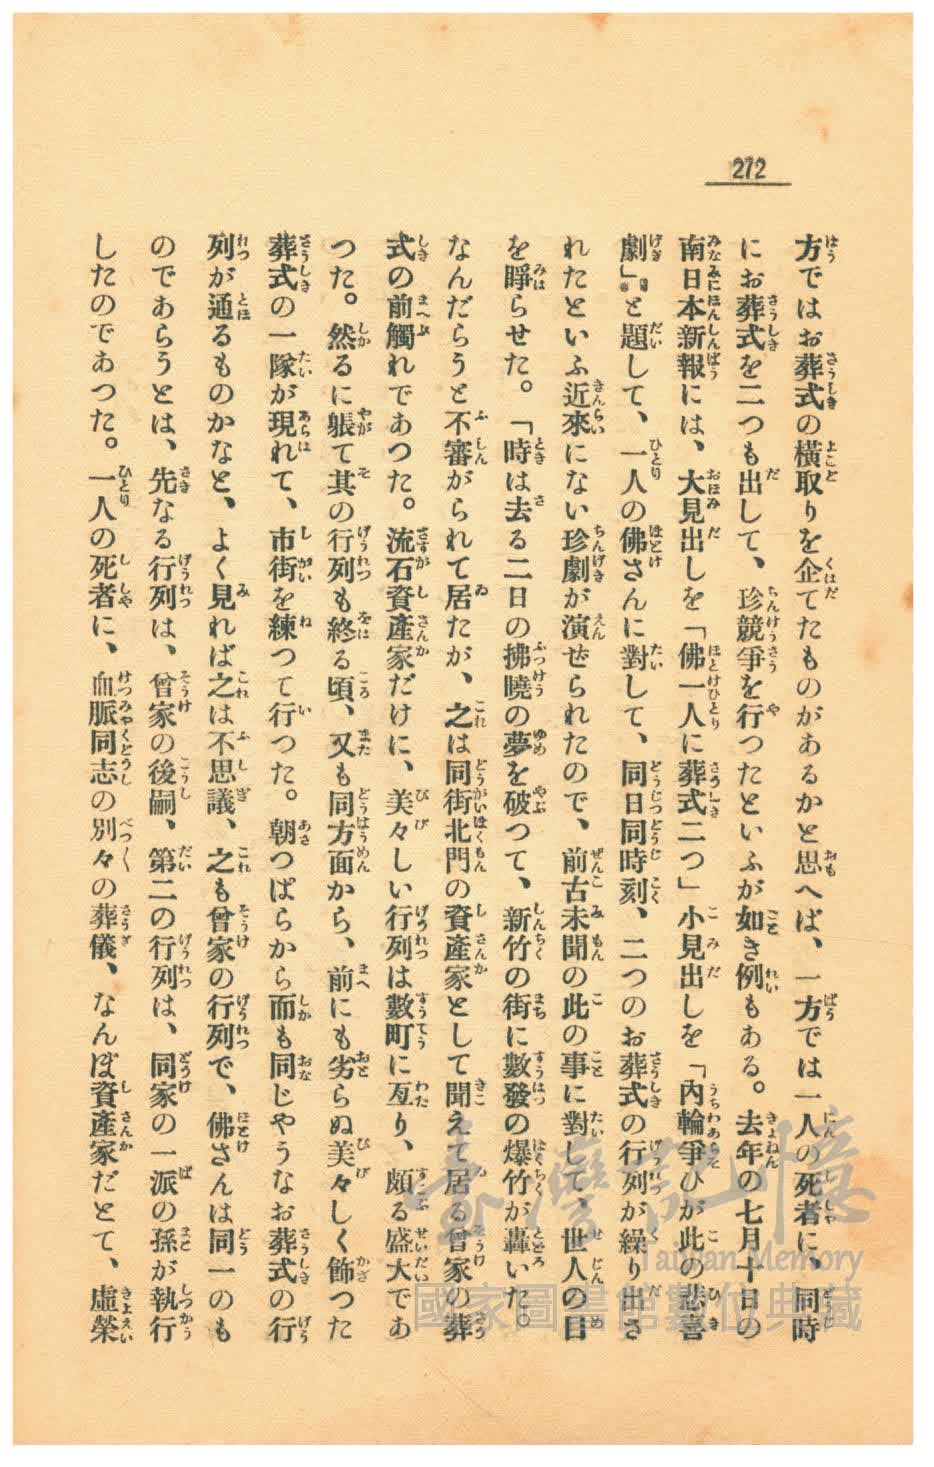 272
方ではお葬式の横取りを企てたものがあるかと思へば、一方では一人の死者に、同時
にお葬式を二つも出して、珍競爭を行つたといふが如き例もある。去年の七月十日の
南日本新報には、大見出しを「佛一人に葬式二つ」小見出しを「內輪爭ひが此の悲喜
劇」と題して、一人の佛さんに對して、同日同時刻、二つのお葬式の行列が繰り出さ
れたといふ近來にない珍劇が演ぜられたので、前古未聞の此の事に對して、世人の目
を睜らせた。「時は去る二日の拂曉の夢を破つて、新竹の街に數發の爆竹が轟いた。
なんだらうと不審がられて居たが、之は同街北門の資產家として聞えて居る曾家の葬
式の前觸れであつた。流石資產家だけに、美々しい行列は數町に亙り、頗る盛大であ
つた。然るに軈て其の行列も終る頃、又も同方面から、前にも劣らぬ美々しく飾つた
葬式の一隊が現れて、市街を練つて行つた。朝つぱらから而も同じやうなお葬式の行
列が通るものかなと、よく見れば之は不思議、之も曾家の行列で、佛さんは同一のも
のであらうとは、先なる行列は、曾家の後嗣、第二の行列は、同家の一派の孫が執行
したのであつた。一人の死者に、血脈同志の別々の葬儀、なんぼ資產家だとて、虛榮
臺灣記憶
Taiwan Memory
國家圖書館數位典藏